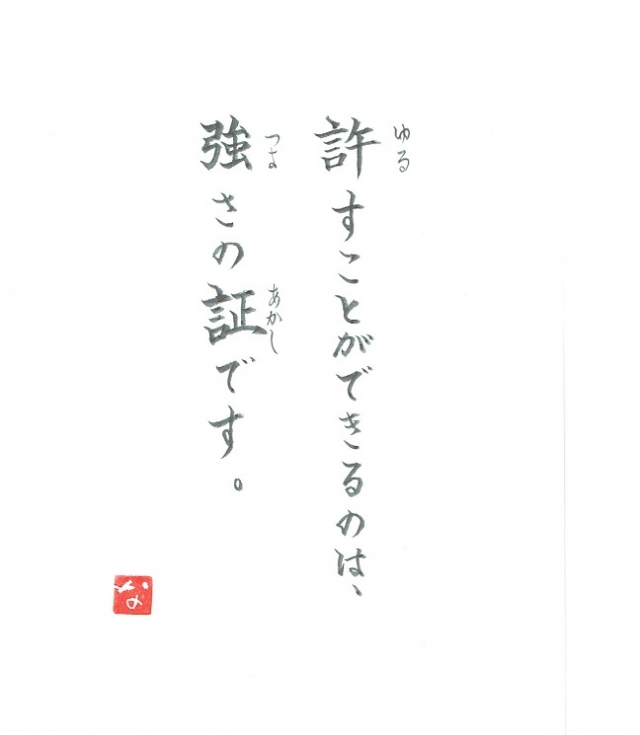 許すことができるのは、
ゆる
強さの証です。
つよ
あかし
な